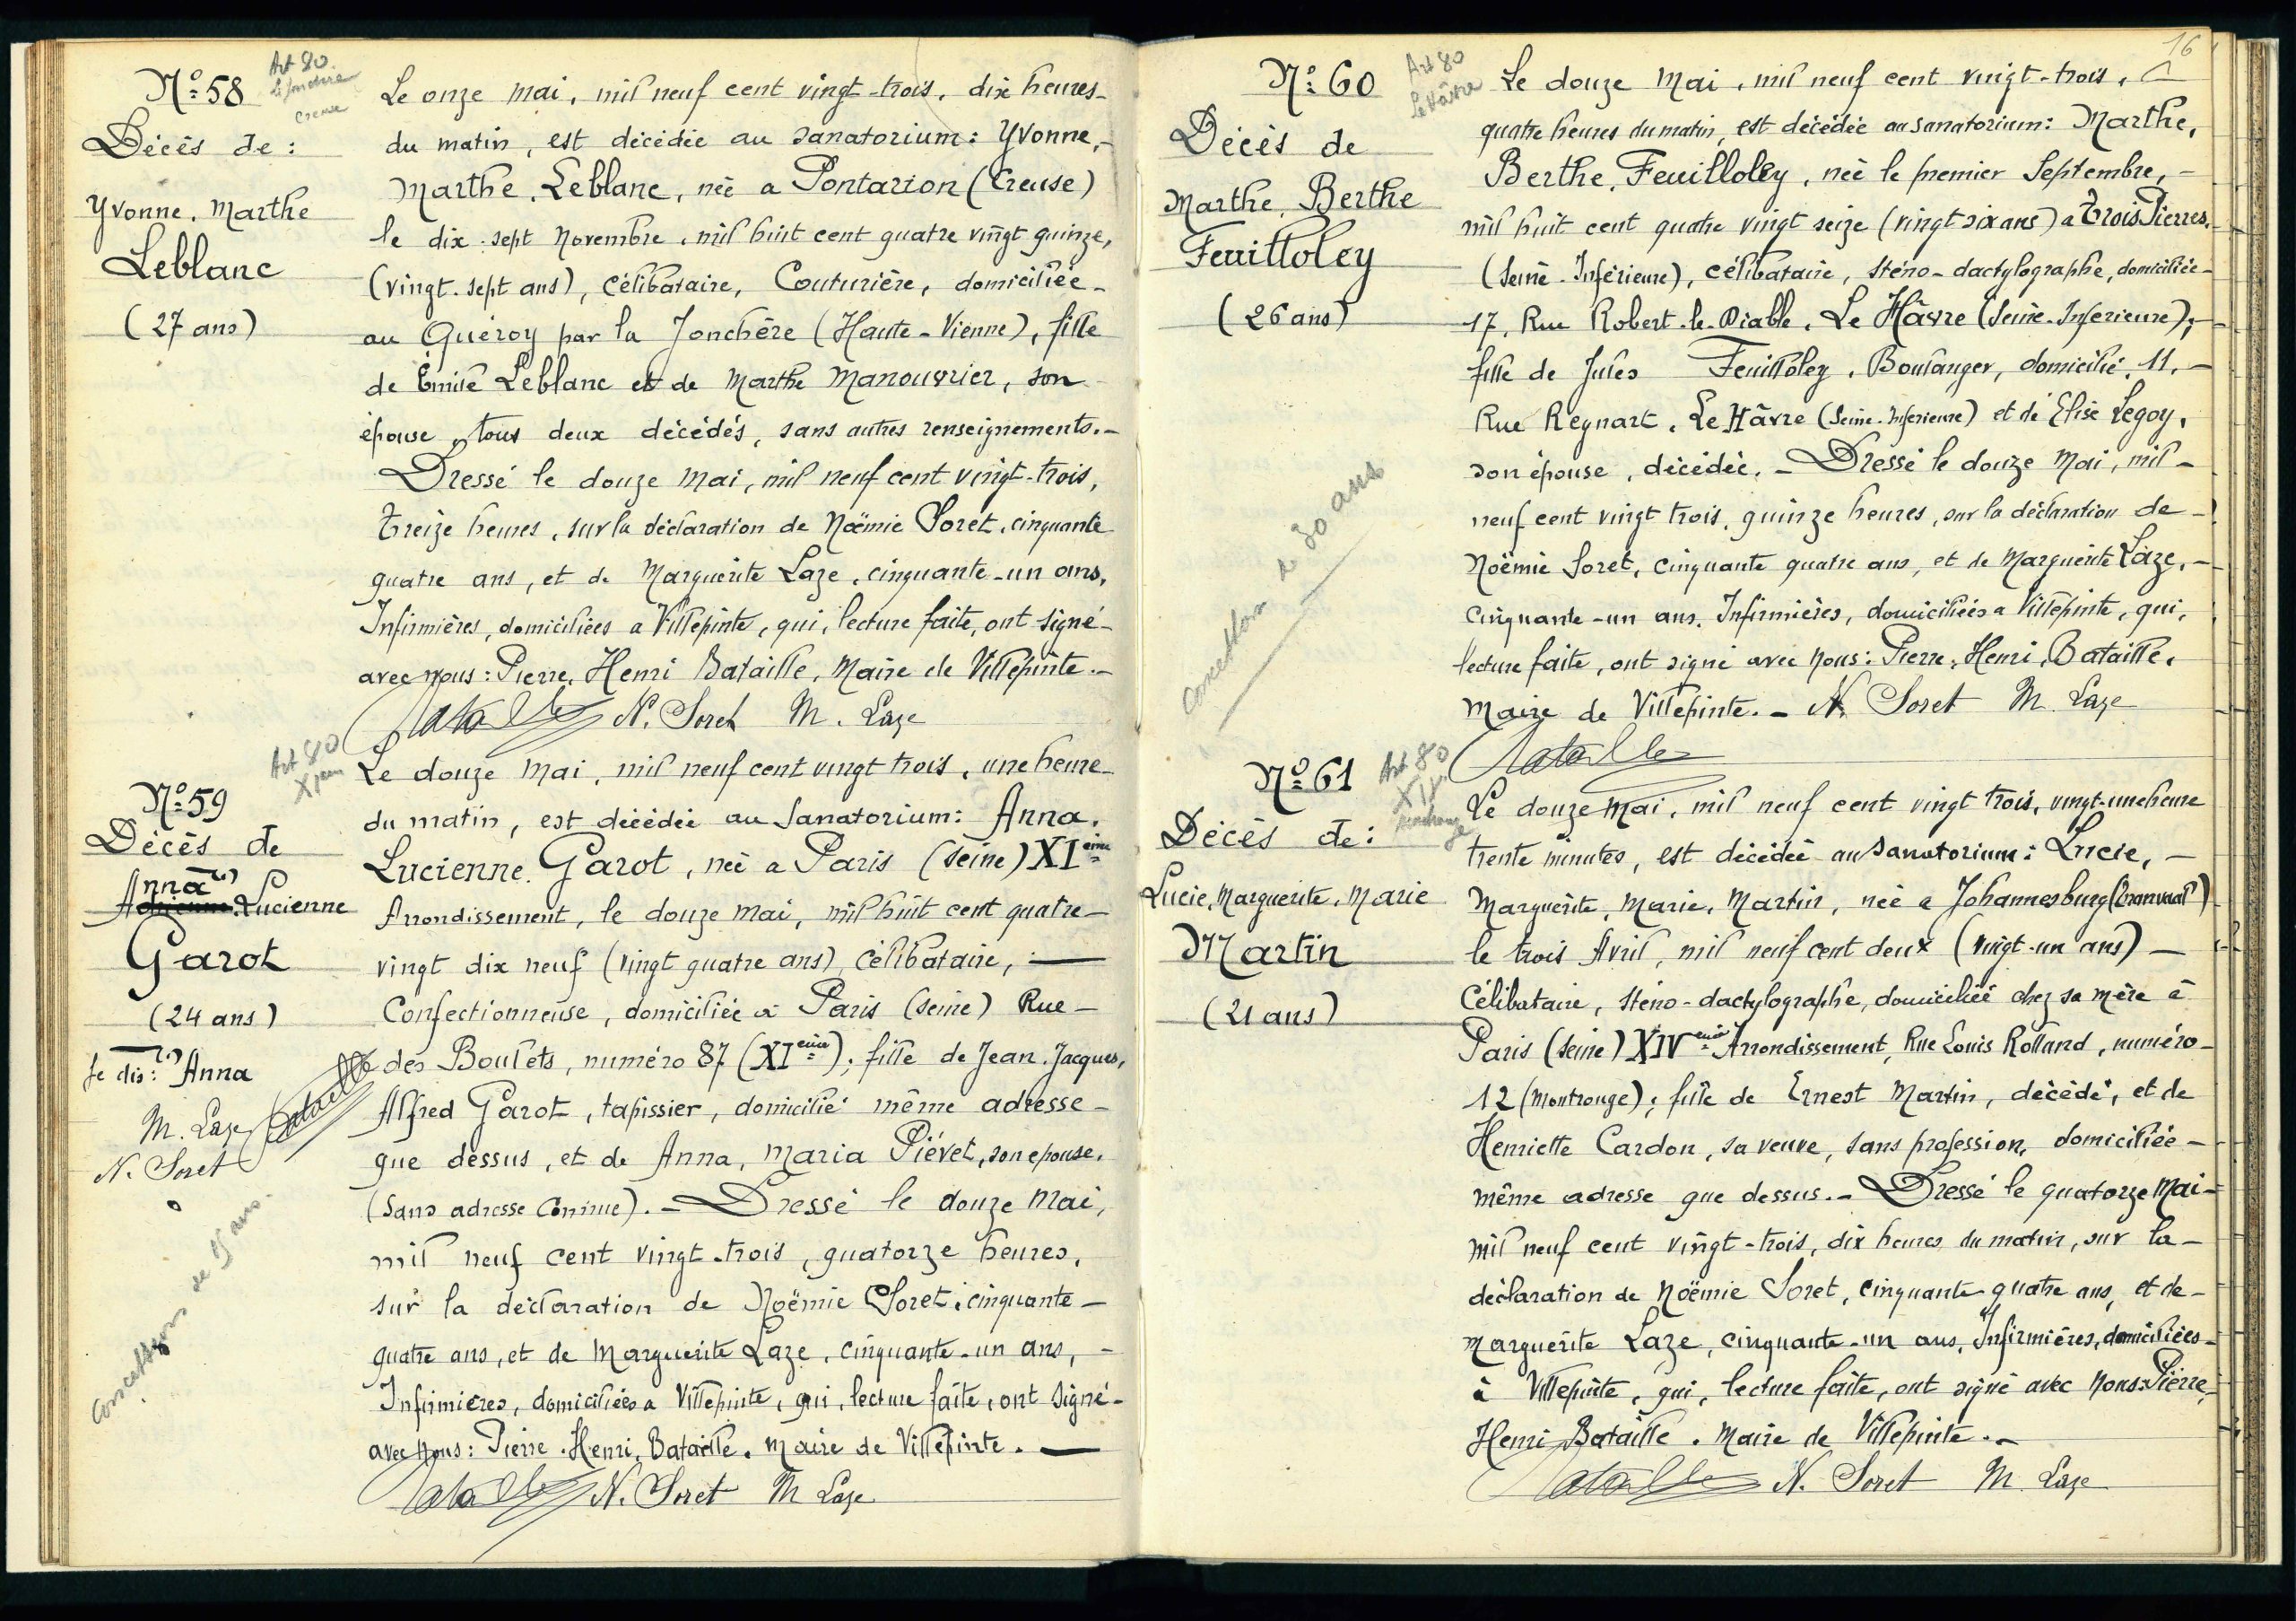 N° 58
Art 80
Décès de :
Yvonne, Marthe
Leblanc
(27 ans)
Le onze mai, mil neuf cent vingt-trois, dix heures
du matin, est décédée au sanatorium : Yvonne,
Marthe, Leblanc, née a Pontarion (Creuse)
le dix-sept Novembre, mil huit cent quatre vingt quinze,
(vingt-sept ans), célibataire, Couturière, domiciliée
au Quéroy par la Jonchère (Haute-Vienne), fille
de Émile Leblanc et de Marthe Manouvrier, son
épouse, tous deux décédés, sans autres renseignements.-
Dressé le douze Mai, mil neuf cent vingt-trois,
treize heures, sur la déclaration de Noëmie Soret, cinquante
quatre ans, et de Marguerite Laze, cinquante-un ans,
Infirmières, domiciliées a Villepinte, qui, lecture faite, ont signé-
avec nous : Pierre, Henri Bataille, Maire de Villepinte.-
Bataille N. Soret M. Laze
N° 59
Art 80
Décès de
Anna (1)
Adrienne, Lucienne
Garot
(24 ans)
(1)
Je dis : Anna
M. Laze Bataille
N. Soret
Concession de 15 ans.
Le douze Mai, mil neuf cent vingt trois, une heure
du matin, est décédée au Sanatorium : Anna,
Lucienne, Garot, née a Paris (Seine) XIème
Arrondissement, le douze mai, mil huit cent quatre-
vingt dix neuf (vingt quatre ans), célibataire,
Confectionneuse, domiciliée à Paris (Seine) Rue-
des Boulets, numéro 87 (XIème); fille de Jean-Jacques,
Alfred Garot, tapissier, domicilié même adresse-
que dessus, et de Anna, Maria Piévet, son épouse,
(Sans adresse Connue).- Dressé le douze Mai,
mil neuf cent vingt-trois, quatorze heures,
sur la déclaration de Noëmie Soret, cinquante-
quatre ans, et de Marguerite Laze, cinquante-un ans, -
Infirmières, domiciliées a Villepinte, qui, lecture faite, ont signé-
avec nous : Pierre, Henri, Bataille, Maire de Villepinte.
Bataille N. Soret M Laze
16
N° 60
Art 80
Le Hâvre
Décès de
Marthe, Berthe
Feuilloley
(26 ans)
Concession de 30 ans
Le douze Mai, mil neuf cent vingt-trois, à
quatre heures du matin, est décédée au sanatorium : Marthe,
Berthe, Feuilloley, née le premier Septembre, -
mil huit cent quatre vingt seize (vingt six ans) a Trois Pierres,
(Seine-Inférieure), célibataire, sténo-dactylographe, domiciliée-
17, Rue Robert-le-Diable, Le Hâvre (Seine-Inférieure);
fille de Jules Feuilloley, Boulanger, domicilié, 11, -
Rue Regnart, Le Hâvre (Seine-Inférieure) et de Elise Legoy,
son épouse, décédée.- Dressé le douze Mai, mil-
neuf cent vingt trois, quinze heures, sur la déclaration de-
Noëmie Soret, cinquante quatre ans, et de Marguerite Laze, -
cinquante-un ans, Infirmières, domiciliées a Villepinte, qui,
lecture faite, ont signé avec nous : Pierre, Henri, Bataille,
Maire de Villepinte.- N. Soret M. Laze
Bataille
N° 61
Art 80
XIV
Décès de :
Lucie, Marguerite, Marie
Martin
(21 ans)
Le douze Mai, mil neuf cent vingt trois, vingt-une heure
trente minutes, est décédée au Sanatorium : Lucie, -
Marguerite, Marie, Martin, née a Johannesburg (Transvaal)
le trois Avril, mil neuf cent deux (vingt-un ans) -
Célibataire, sténo-dactylographe, domiciliée chez sa mère à
Paris (Seine) XIVème Arrondissement, Rue Louis Rolland, numéro-
12 (Montrouge); fille de Ernest Martin, décédé, et de
Henriette Cardon, sa veuve, sans profession, domiciliée-
même adresse que dessus.- Dressé le quatorze Mai-
mil neuf cent vingt-trois, dix heures du matin, sur la-
déclaration de Noëmie Soret, cinquante-quatre ans, et de-
Marguerite Laze, cinquante-un ans, Infirmières, domiciliées-
à Villepinte, qui, lecture faite, ont signé avec nous : Pierre,
Henri Bataille, Maire de Villepinte.-
Bataille N. Soret M. Laze